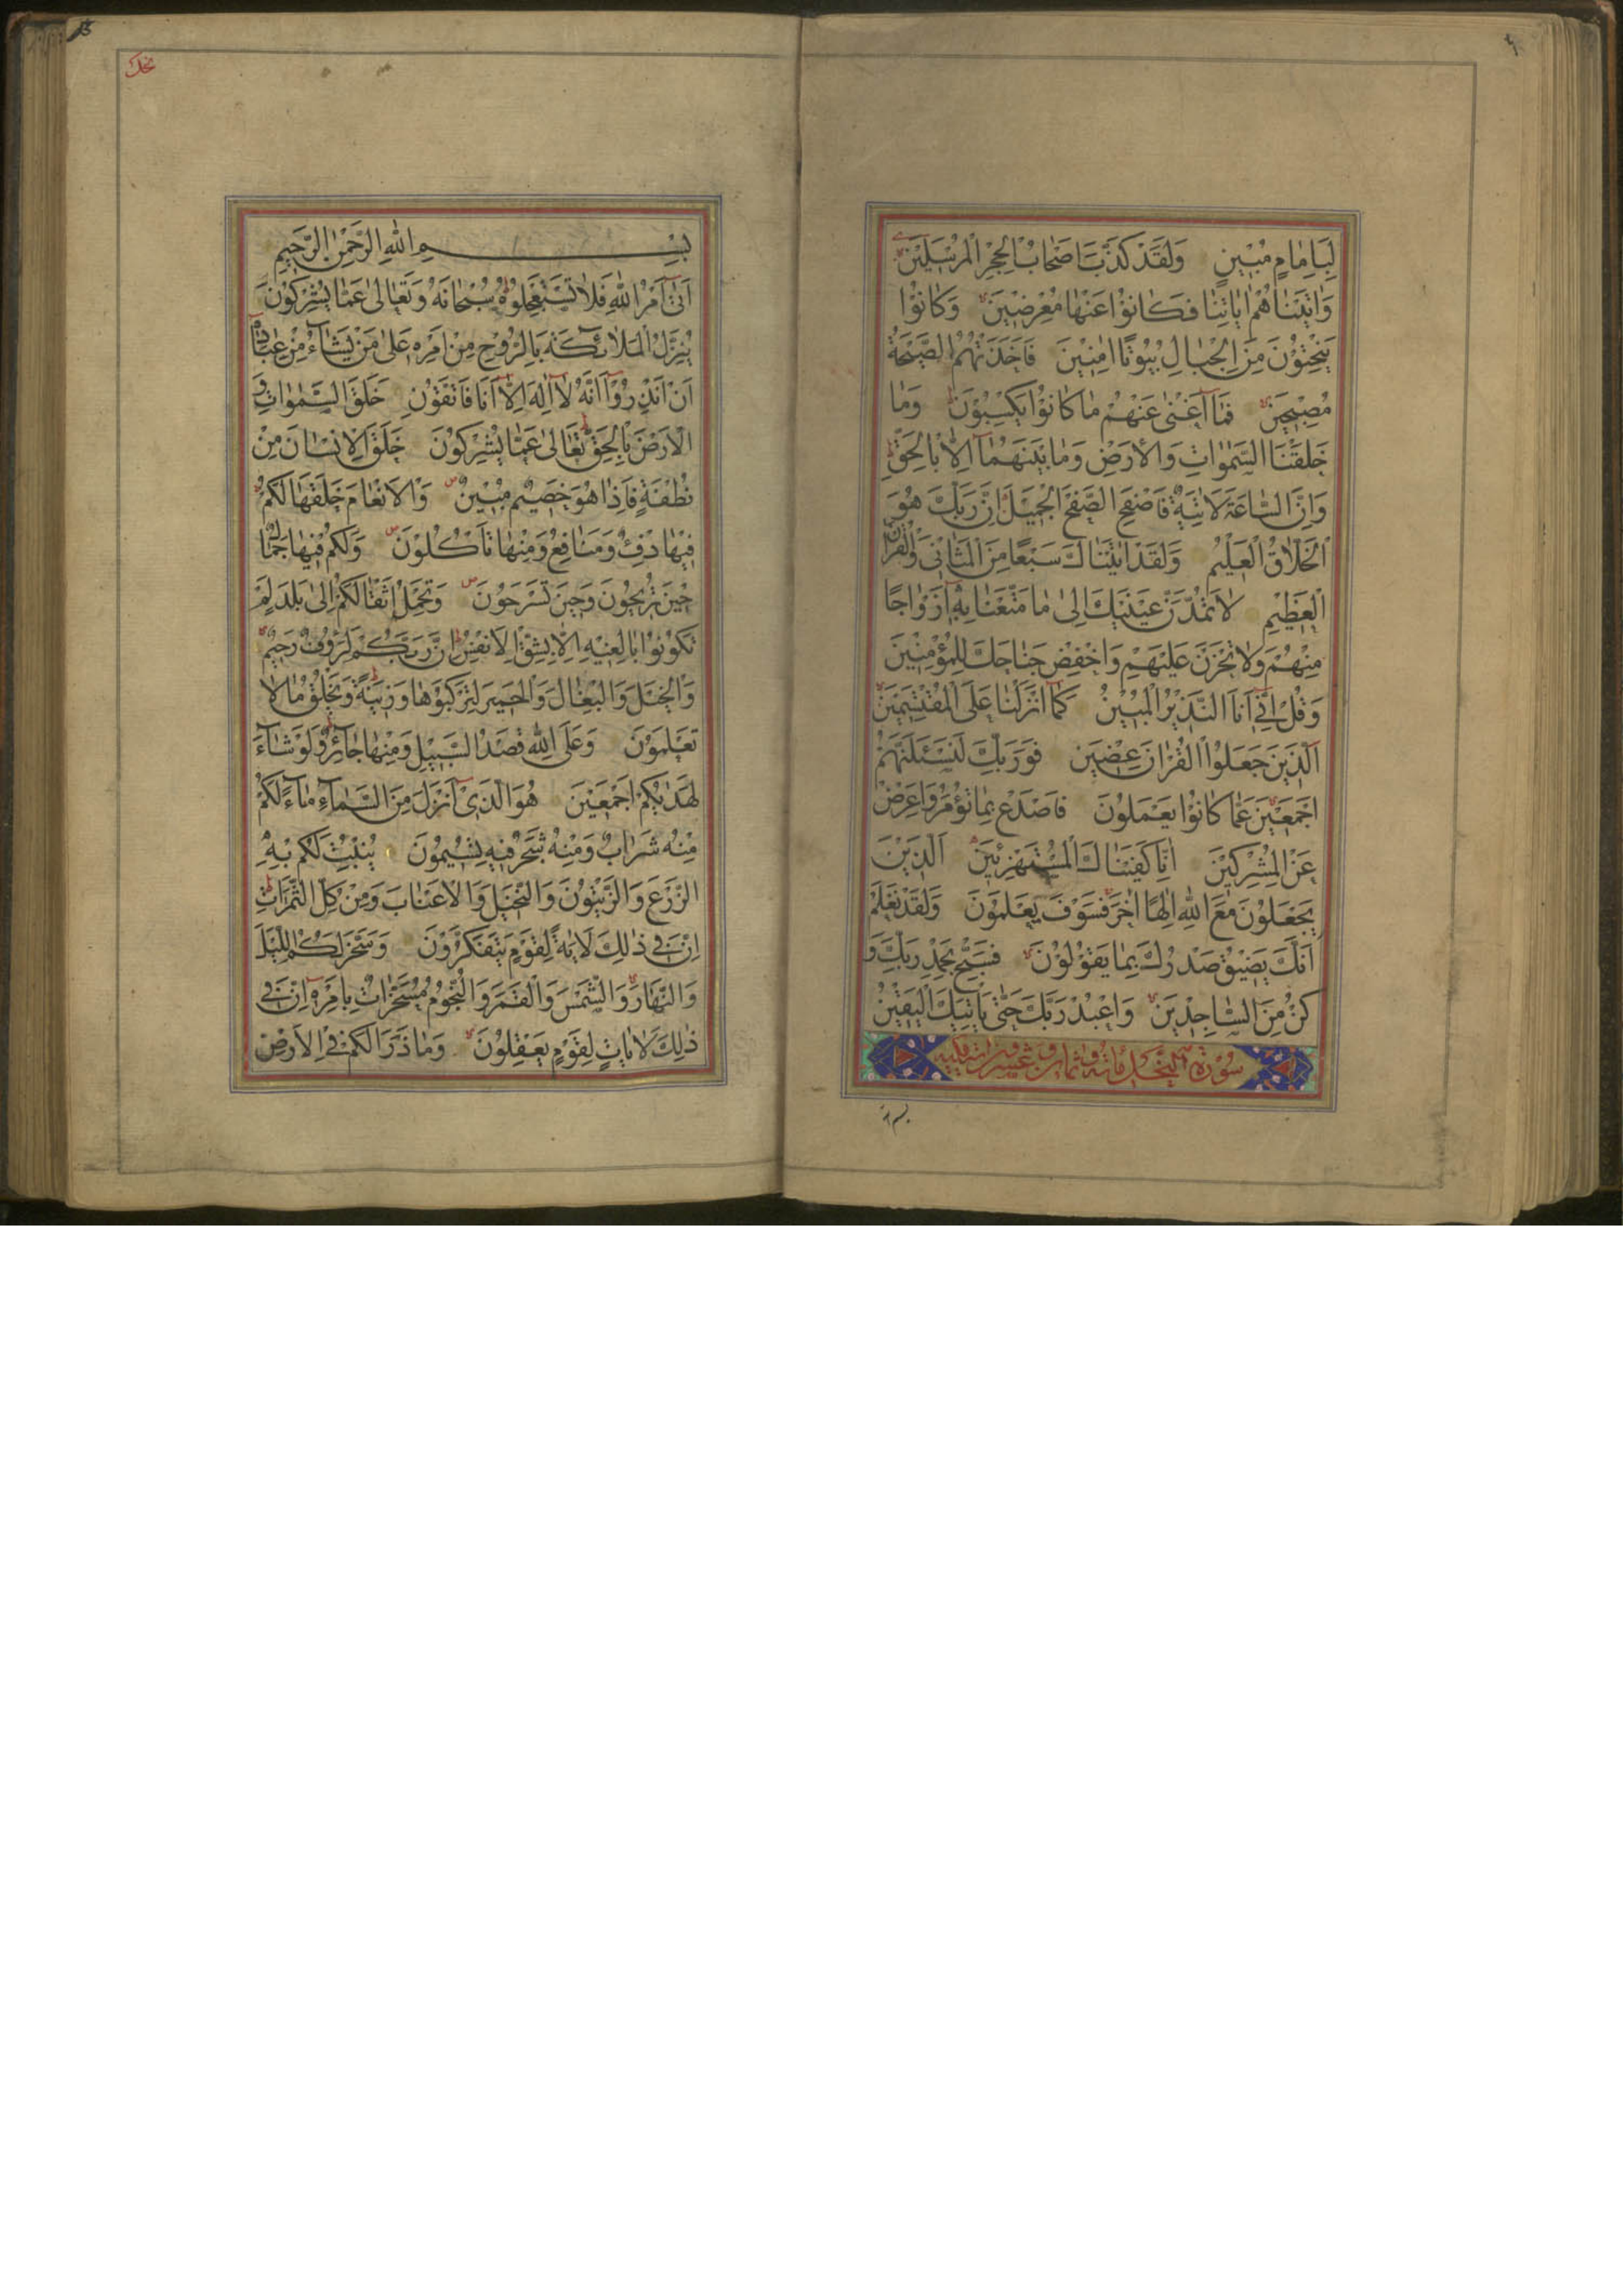 لَبِاِمٰامٍ مُبٖينٍ وَلَقَدْ كَذَّبَ اَصْحٰابُ الْحِجْرِ الْمُرْسَلٖينَ
وَاٰتَيْنٰاهُمْ اٰيٰاتِنٰا فَكٰانُوْا عَنْهٰا مُعْرِضٖينَ وَكٰانُوْا
يَنْحِتُوْنَ مِنَ الْجِبٰالِ بُيُوْتًا اٰمِنٖينَ فَاَخَذَتْهُمُ الصَّيْحَةُ
مُصْبِحٖينَ فَمٰا اَغْنٰى عَنْهُمْ مٰا كٰانُوْا يَكْسِبُوْنَ وَمٰا
خَلَقْنَا السَّمٰوٰاتِ وَالْاَرْضَ وَمٰا بَيْنَهُمٰا اِلّٰا بِالْحَقِّ
وَاِنَّ السّٰاعَةَ لَاٰتِيَةٌ فَاصْفَحِ الصَّفْحَ الْجَمٖيلَ اِنَّ رَبَّكَ هُوَ
الْخَلّٰاقُ الْعَلٖيمُ وَلَقَدْ اٰتَيْنٰاكَ سَبْعًا مِنَ الْمَثٰانٖى وَالْقُرْاٰنَ
الْعَظٖيمَ لٰا تَمُدَّنَّ عَيْنَيْكَ اِلىٰ مٰا مَتَّعْنٰا بِهٖ اَزْوٰاجًا
مِنْهُمْ وَلٰا تَحْزَنْ عَلَيْهِمْ وَاخْفِضْ جَنٰاحَكَ لِلْمُؤْمِنٖينَ
وَقُلْ اِنّٖى اَنَا النَّذٖيرُ الْمُبٖينُ كَمٰا اَنْزَلْنٰا عَلَى الْمُقْتَسِمٖينَ
اَلَّذٖينَ جَعَلُوا الْقُرْاٰنَ عِضٖينَ فَوَرَبِّكَ لَنَسْئَلَنَّهُمْ
اَجْمَعٖينَ عَمّٰا كٰانُوْا يَعْمَلُوْنَ فَاصْدَعْ بِمٰا تُؤْمَرُ وَاَعْرِضْ
عَنِ الْمُشْرِكٖينَ اِنّٰا كَفَيْنٰاكَ الْمُسْتَهْزِئٖينَ اَلَّذٖينَ
يَجْعَلُوْنَ مَعَ اللّٰهِ اِلٰهًا اٰخَرَ فَسَوْفَ يَعْلَمُوْنَ وَلَقَدْ نَعْلَمُ
اَنَّكَ يَضٖيقُ صَدْرُكَ بِمٰا يَقُوْلُوْنَ فَسَبِّحْ بِحَمْدِ رَبِّكَ وَ
كُنْ مِنَ السّٰاجِدٖينَ وَاعْبُدْ رَبَّكَ حَتّٰى يَاْتِيَكَ الْيَقٖينُ
سورة النحل مائة وثمان وعشرون اية مكية
بسم
نحل
بِسْمِ اللّٰهِ الرَّحْمٰنِ الرَّحٖيمِ
اَتٰى اَمْرُ اللّٰهِ فَلٰا تَسْتَعْجِلُوْهُ سُبْحٰانَهُ وَتَعٰالىٰ عَمّٰا يُشْرِكُوْنَ
يُنَزِّلُ الْمَلٰائِكَةَ بِالرُّوْحِ مِنْ اَمْرِهٖ عَلىٰ مَنْ يَشٰاءُ مِنْ عِبٰادِهٖ
اَنْ اَنْذِرُوْا اَنَّهُ لٰا اِلٰهَ اِلّٰا اَنَا فَاتَّقُوْنِ خَلَقَ السَّمٰوٰاتِ وَ
الْاَرْضَ بِالْحَقِّ تَعٰالىٰ عَمّٰا يُشْرِكُوْنَ خَلَقَ الْاِنْسٰانَ مِنْ
نُطْفَةٍ فَاِذٰا هُوَ خَصٖيمٌ مُبٖينٌ وَالْاَنْعٰامَ خَلَقَهٰا لَكُمْ
فٖيهٰا دِفْءٌ وَمَنٰافِعُ وَمِنْهٰا تَاْكُلُوْنَ وَلَكُمْ فٖيهٰا جَمٰالٌ
حٖينَ تُرٖيحُوْنَ وَحٖينَ تَسْرَحُوْنَ وَتَحْمِلُ اَثْقٰالَكُمْ اِلىٰ بَلَدٍ لَمْ
تَكُوْنُوْا بٰالِغٖيهِ اِلّٰا بِشِقِّ الْاَنْفُسِ اِنَّ رَبَّكُمْ لَرَؤُفٌ رَحٖيمٌ
وَالْخَيْلَ وَالْبِغٰالَ وَالْحَمٖيرَ لِتَرْكَبُوْهٰا وَزٖينَةً وَيَخْلُقُ مٰا لٰا
تَعْلَمُوْنَ وَعَلَى اللّٰهِ قَصْدُ السَّبٖيلِ وَمِنْهٰا جٰائِرٌ وَلَوْ شٰاءَ
لَهَدٰيكُمْ اَجْمَعٖينَ هُوَ الَّذٖى اَنْزَلَ مِنَ السَّمٰاءِ مٰاءً لَكُمْ
مِنْهُ شَرٰابٌ وَمِنْهُ شَجَرٌ فٖيهِ تُسٖيمُوْنَ يُنْبِتُ لَكُمْ بِهِ
الزَّرْعَ وَالزَّيْتُوْنَ وَالنَّخٖيلَ وَالْاَعْنٰابَ وَمِنْ كُلِّ الثَّمَرٰاتِ
اِنَّ فٖى ذٰلِكَ لَاٰيَةً لِقَوْمٍ يَتَفَكَّرُوْنَ وَسَخَّرَ لَكُمُ اللَّيْلَ
وَالنَّهٰارَ وَالشَّمْسَ وَالْقَمَرَ وَالنُّجُوْمُ مُسَخَّرٰاتٌ بِاَمْرِهٖ اِنَّ فٖى
ذٰلِكَ لَاٰيٰاتٍ لِقَوْمٍ يَعْقِلُوْنَ وَمٰا ذَرَاَ لَكُمْ فِى الْاَرْضِ